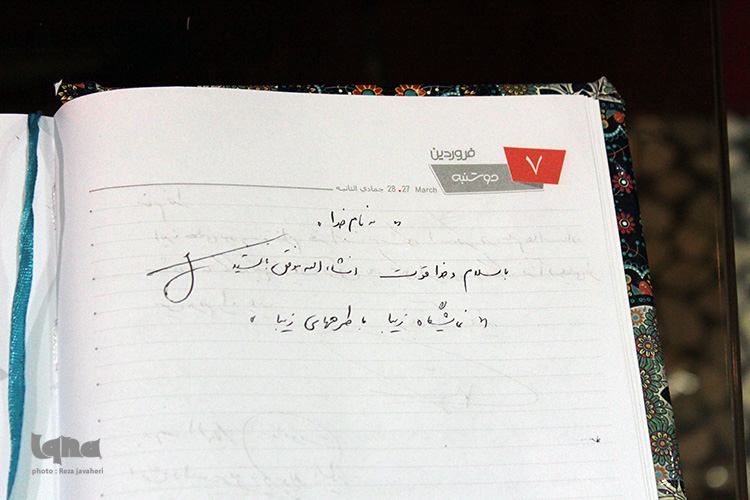 فروردین
۷
دوشنبه
March 27 ● 28 جمادی الثانیه
« به نام خدا »
باسلام و خدا قوت انشاءالله موفق باشید
« نمایشگاه زیبا با طرحهای زیبا »
iqna
photo : Reza javaheri